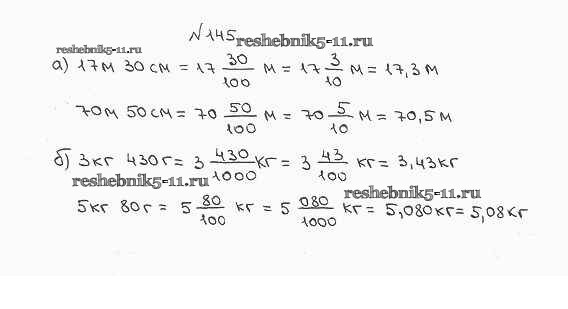 №145 reshebnik5-11.ru
reshebnik5-11.ru
а) 17м 30 см = 17 30/100 м = 17 3/10 м = 17,3 м
70м 50 см = 70 50/100 м = 70 5/10 м = 70,5 м
б) 3кг 430г = 3 430/1000 кг = 3 43/100 кг = 3,43кг
reshebnik5-11.ru
reshebnik5-11.ru
5кг 80г = 5 80/100 кг = 5 080/1000 кг = 5,080кг = 5,08кг